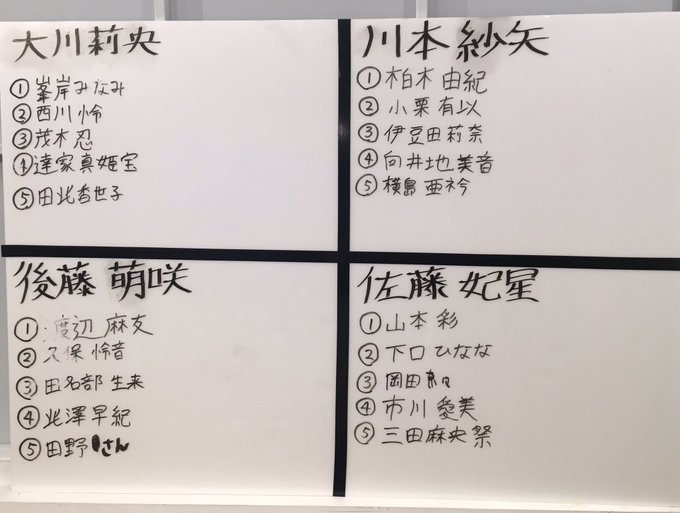 大川莉央
①峯岸みなみ
②西川怜
③茂木忍
④達家真姫宝
⑤田北香世子
川本紗矢
①柏木由紀
②小栗有以
③伊豆田莉奈
④向井地美音
⑤横島亜衿
後藤萌咲
①渡辺麻友
②久保怜音
③田名部生来
④北澤早紀
⑤田野さん
佐藤妃星
①山本彩
②下口ひなな
③岡田奈々
④市川愛美
⑤三田麻央祭